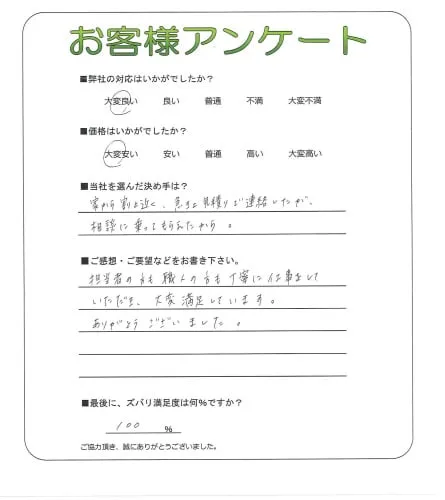 お客様アンケート
■弊社の対応はいかがでしたか？
大変良い 良い 普通 不満 大変不満
■価格はいかがでしたか？
大変安い 安い 普通 高い 大変高い
■当社を選んだ決め手は？
家から割と近く、見積りご連絡したが、
相談に乗ってもらえたから。
■ご感想・ご要望などをお書き下さい。
担当者の方も職人の方も丁寧に仕事をして
いただき、大変満足しています。
ありがとうございました。
■最後に、ズバリ満足度は何％ですか？
100 ％
ご協力頂き、誠にありがとうございました。